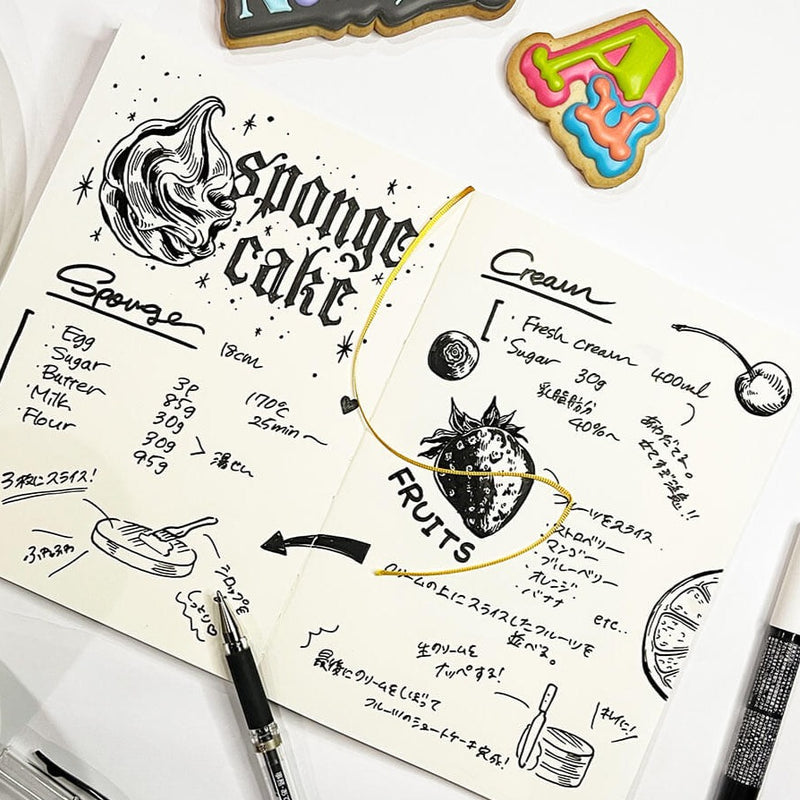 sponge
cake
Sponge
18cm
・Egg 3p
・Sugar 85g
・Butter 30g
・Milk 30g
・Flour 95g
湯せん
170℃
25min〜
3枚にスライス!
ふわふわ
シロップを
しっとり♡
Cream
・Fresh cream 400ml
・Sugar 30g
乳脂肪分
40%〜
FRUITS
フルーツをスライス
・ストロベリー
・マンゴー
・ブルーベリー
・オレンジ
・バナナ
etc..
クリームの上にスライスしたフルーツを
並べる。
生クリームを
ナッペする!
キレイに!
最後にクリームをしぼって
フルーツのショートケーキ完成!
A